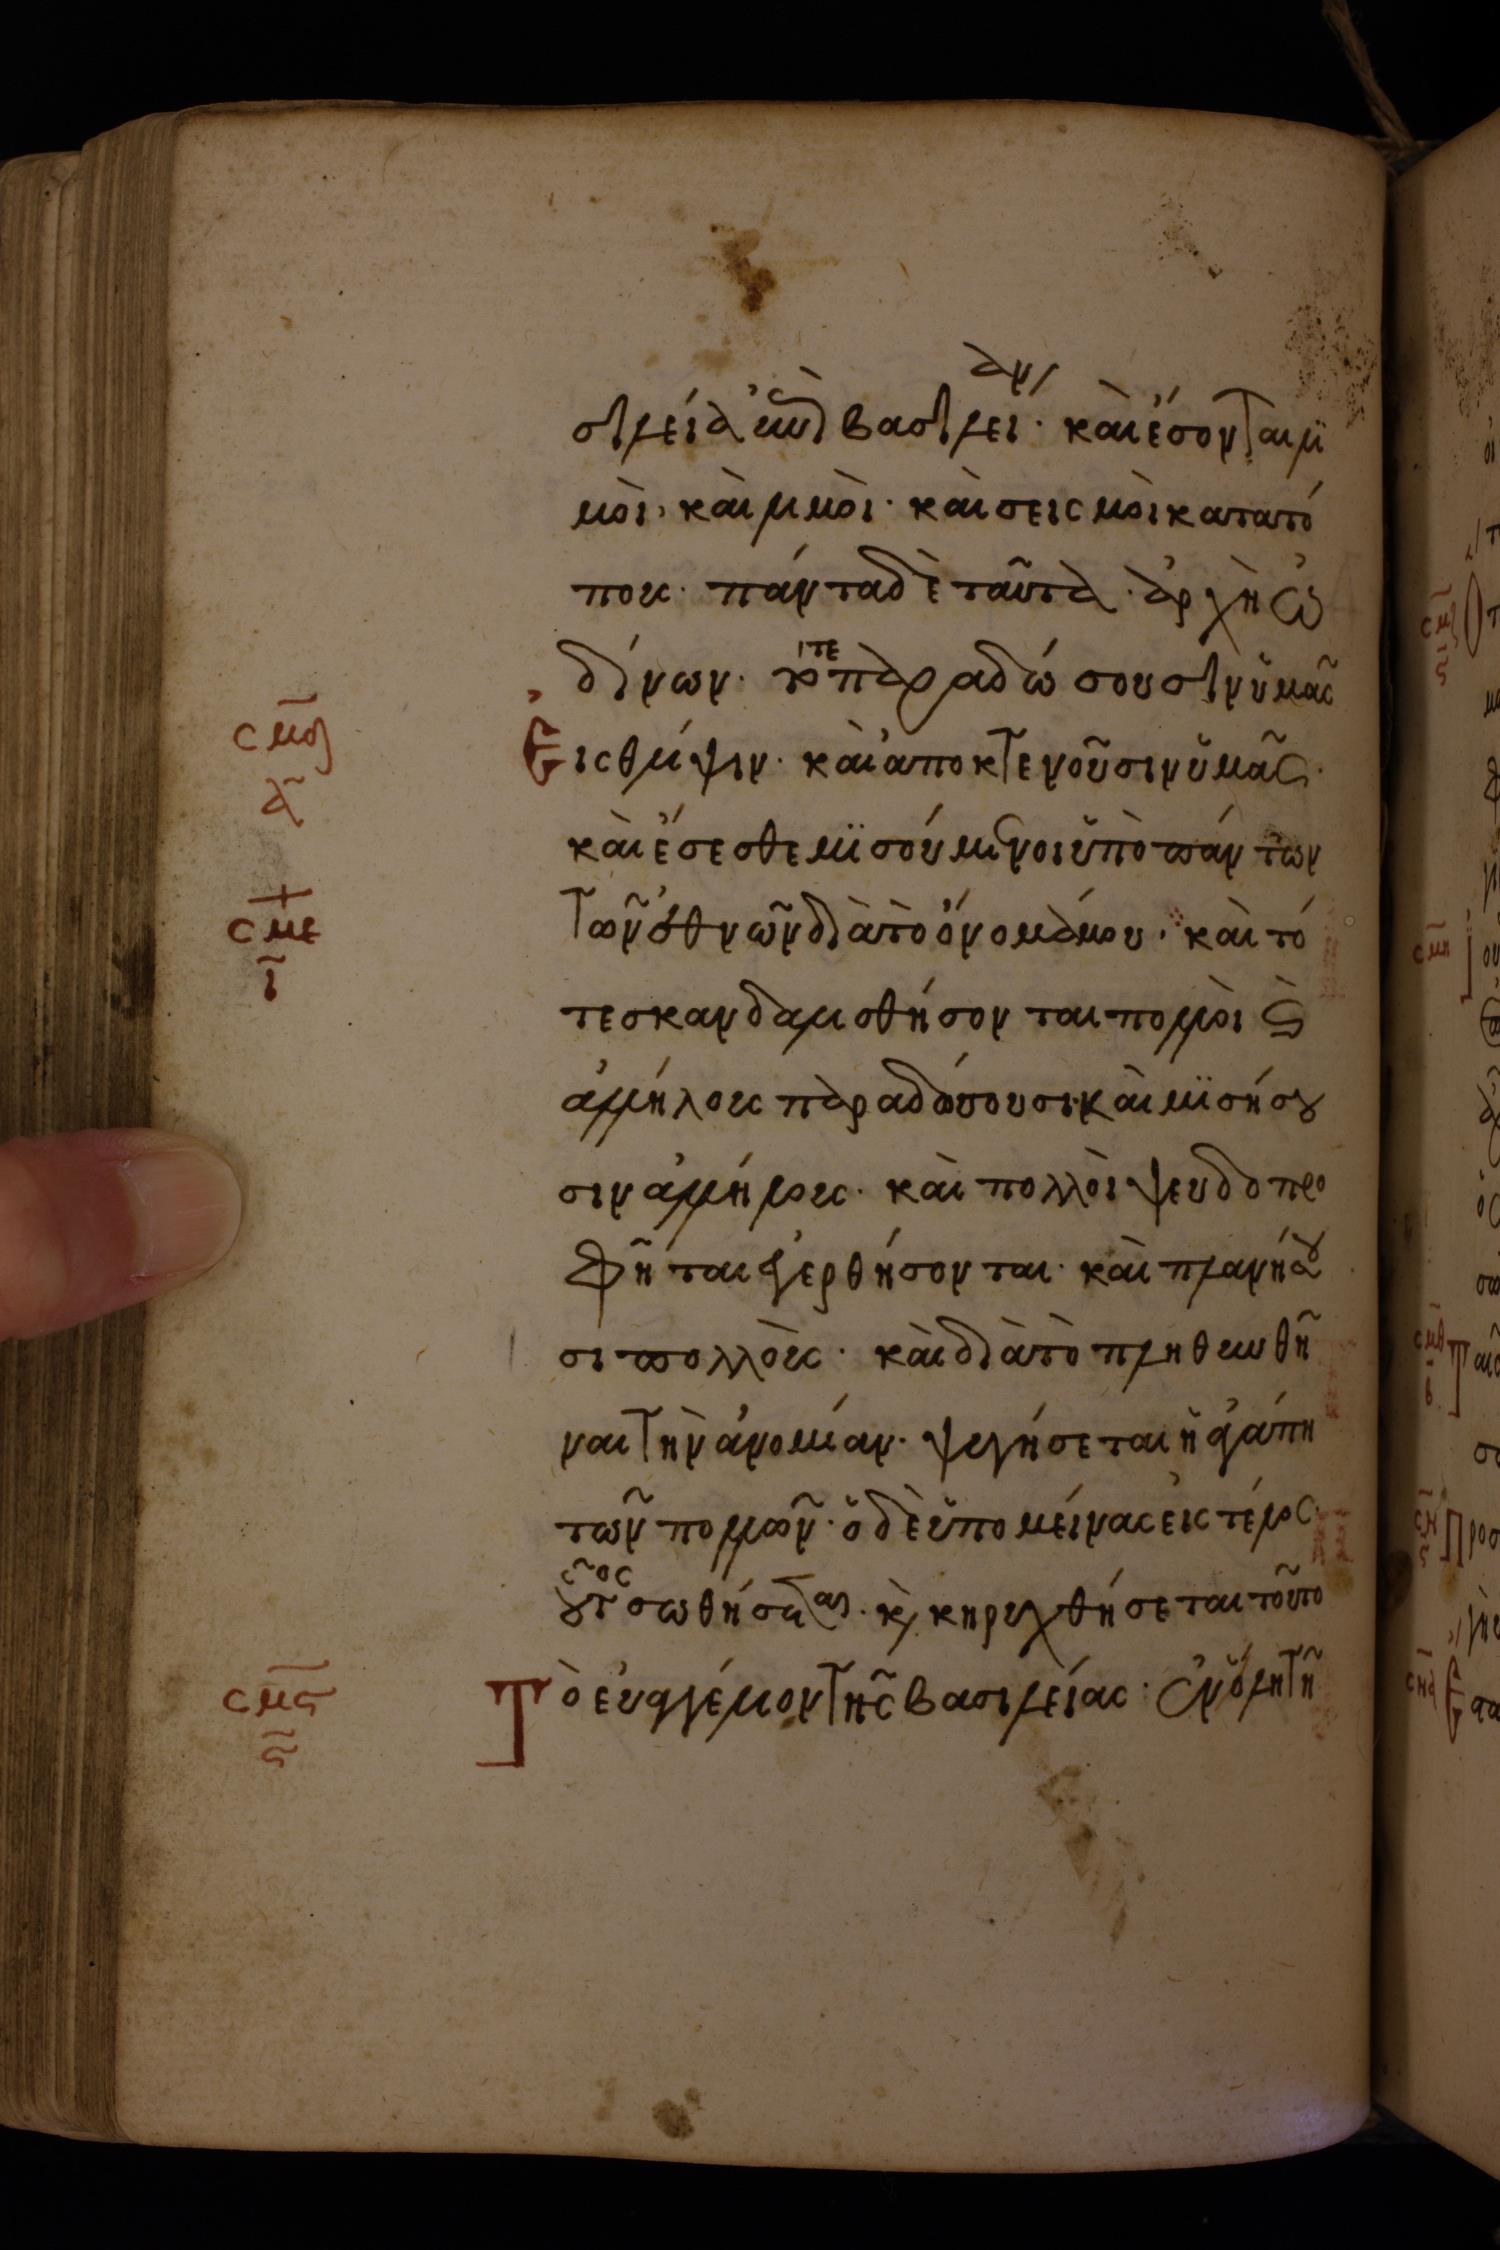 σιλεία ἐπὶ βασιλείαν· καὶ ἔσονται λι
μοὶ· καὶ λιμοὶ· καὶ σεισμοὶ κατατό
πους· πάντα δὲ ταῦτα· ἀρχὴ ὠ
δίνων· τότε παραδώσουσιν ὑμᾶς
σμδ
α
Εἰς θλίψιν· καὶ ἀποκτενοῦσιν ὑμᾶς·
καὶ ἔσεσθε μισούμενοι ὑπὸ πάντων
σμε
ι
τῶν ἐθνῶν διὰ τὸ ὄνομά μου· καὶ τό
τε σκανδαλισθήσονται πολλοὶ καὶ
ἀλλήλους παραδώσουσι· καὶ μισήσου
σιν ἀλλήλους· καὶ πολλοὶ ψευδοπρο
φῆται ἐγερθήσονται· καὶ πλανήσου
σι πολλοὺς· καὶ διὰ τὸ πληθυνθῆ
ναι τὴν ἀνομίαν· ψυγήσεται ἡ ἀγάπη
τῶν πολλῶν· ὁ δὲ ὑπομείνας εἰς τέλος
οὗτος σωθήσεται· καὶ κηρυχθήσεται τοῦτο
σμς
ς
Τὸ εὐαγγέλιον τῆς βασιλείας· ἐν ὅλῃ τῇ